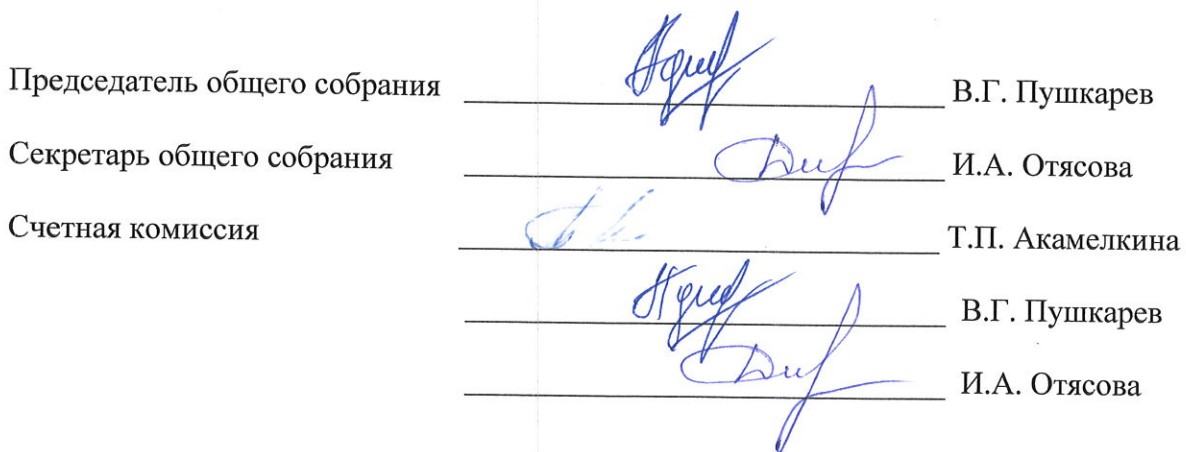 Председатель общего собрания В.Г. Пушкарев
Секретарь общего собрания И.А. Отясова
Счетная комиссия Т.П. Акамелкина
В.Г. Пушкарев
И.А. Отясова